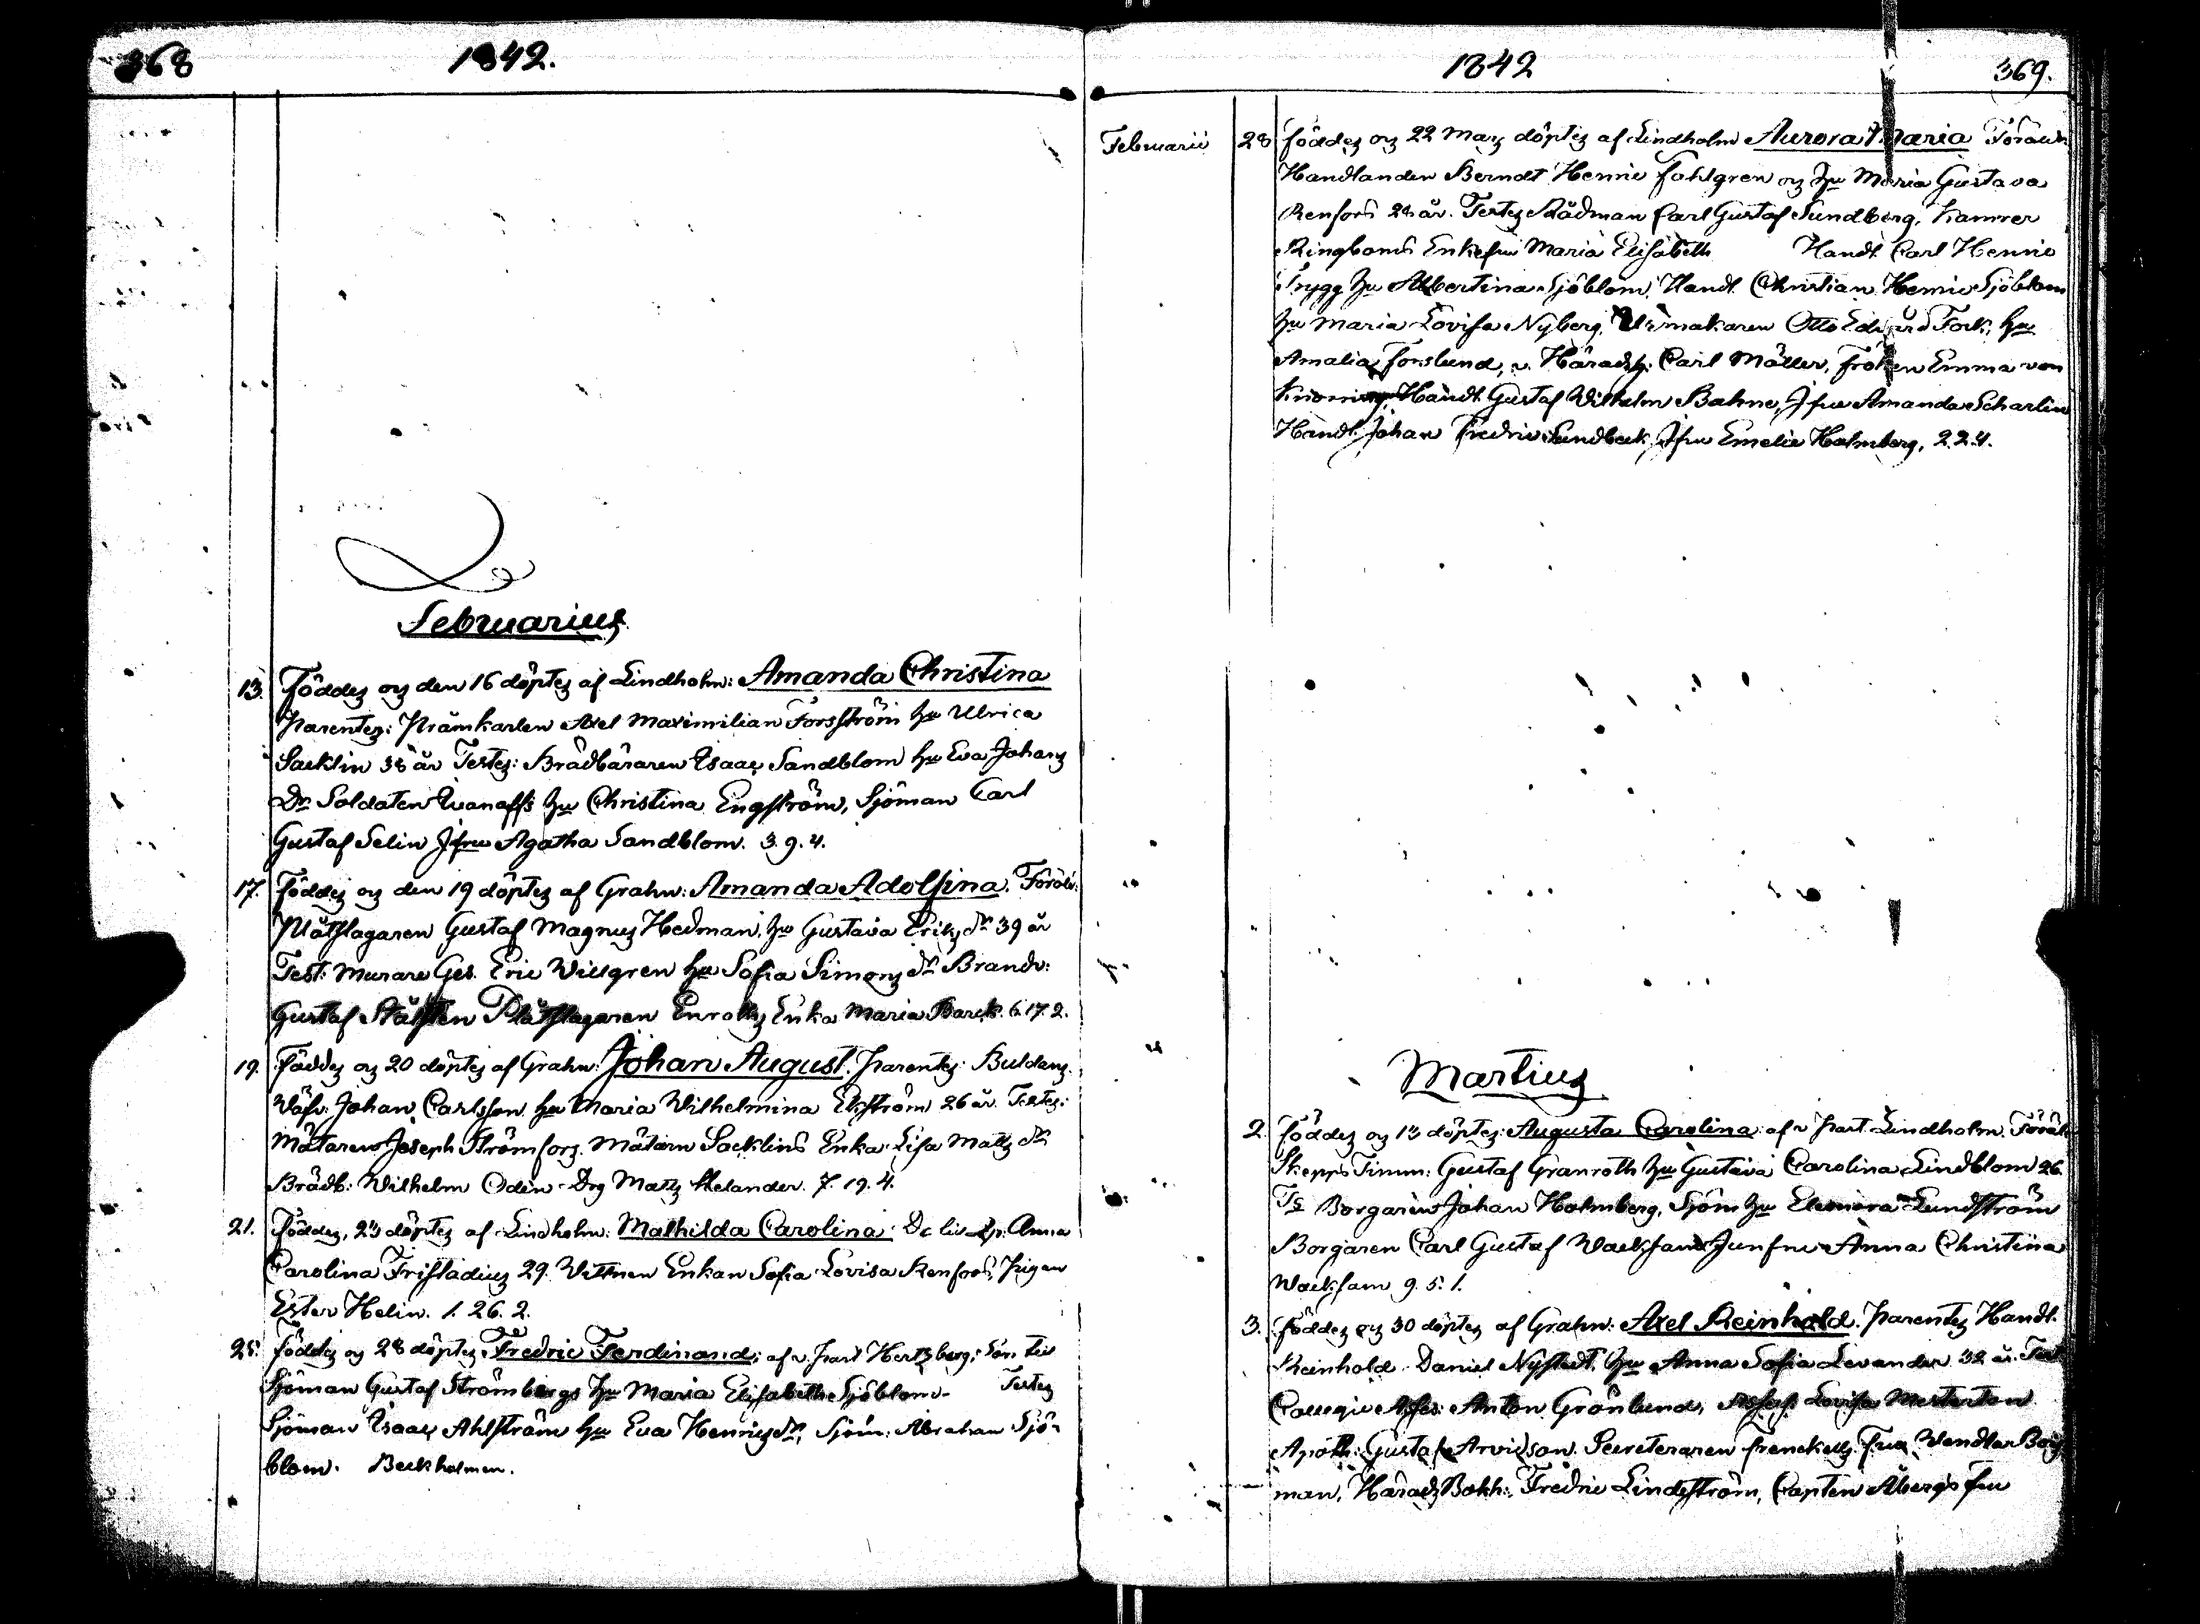 368
1842.
Februarius
13. Föddes og den 16 döptes af Lindholm: Amanda Christina
Parentes: Pråmkarlen Axel Maximilian Forsström hu Ulrica
Sacklin 38 år Testes: Brädbäraren Isaac Sandblom hu Eva Johans
Dr Soldaten Ivanoffs hu Christina Engström, Sjöman Carl
Gustaf Selin Jfru Agatha Sandblom. 3. 9. 4.
17. Föddes og den 19 döptes af Grahn: Amanda Adolfina. Föräl:
Plåtslagaren Gustaf Magnus Hedman, hu Gustava Eriks dr 39 år
Test: Murare Ges. Eric Willgren hu Sofia Simons dr Brandv:
Gustaf Plåtslagaren Enroths Enka Maria Barck. 6. 17. 2.
19. Föddes og 20 döptes af Grahn: Johan August. Parentes: Buldans
Wäfv: Johan Carlsson hu Maria Wilhelmina Ekström 26 år. Testes:
Mätaren Joseph Strömfors. Mätarn Sacklins Enka Lisa Matts dr
Brädb: Wilhelm Odén Drg Matts Helander. 7. 19. 4.
21. Föddes, 23 döptes af Lindholm: Mathilda Carolina. Anna
Carolina Fristadius 29. Vittnen Enkan Sofia Lovisa Renfors, Pigan
Ester Helin. 1. 26. 2.
25. föddes og 28 döptes Fredric Ferdinand; af v. Past Hertzberg; Son till
Sjöman Gustaf Strömbergs hu Maria Elisabeth Sjöblom. Testes
Sjöman Isaac Ahlström hu Eva Henrics dr, Sjöm: Abraham Sjö-
blom. Beckholmen.
1842
369.
Februarii 28 föddes og 22 Mars döptes af Lindholm Aurora Maria Föräldr:
Handlanden Berndt Henric Fahlgren og hu Maria Gustava
Renfors 28 år. Testes Rådman Carl Gustaf Sundberg, Kamrer
Ringboms Enkefru Maria Elisabeth Handl. Carl Henric
Trygg hu Albertina Sjöblom, Handl. Christian Henric Sjöblom
hu Maria Lovisa Nyberg, Urmakaren Otto Edvard Fock, hu
Amalia Forslund, v. Häradsh: Carl Möller, fröken Emma von
Knorring, Handl. Gustaf Wilhelm Bahne, Jfru Amanda Scharlin
Handl. Johan Fredric Sundbeck Jfru Emelie Holmberg, 2. 2. 4.
Martius
2. föddes og 13 döptes: Augusta Carolina: af v Past. Lindholm. Föräl
Skepps Timm: Gustaf Granroth hu Gustava Carolina Lindblom 26.
Ts Borgaren Johan Holmberg, Sjöm hu Eleonora Lundström
Borgaren Carl Gustaf Wacksam Junfru Anna Christina
Wacksam 9. 5. 1.
3. föddes og 30 döptes af Grahn: Axel Reinhold. Parentes Handl.
Reinhold Daniel Nystedt, hu Anna Sofia Levander 32 år. Test
Collegii Asses: Anton Grönlund, Lovisa
Apoth: Gustaf Arvidson. Secreteraren Frenckells fru Wendla Boij
man, Härads Bokh: Fredric Lindström, Capten Åbergs fru